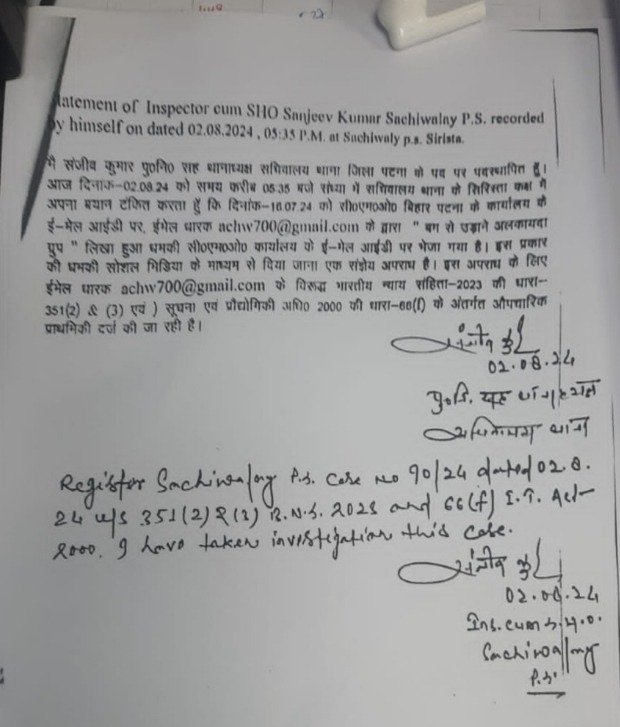 tatement of Inspector cum SHO Sanjeev Kumar Sachiwalay P.S. recorded
y himself on dated 02.08.2024 , 05:35 P.M. at Sachiwaly p.s. Sirista.
मैं संजीव कुमार पु०नि० सह थानाध्यक्ष सचिवालय थाना जिला पटना के पद पर पदस्थापित हूँ।
आज दिनांक-02.08.24 को समय करीब 05.35 बजे संध्या में सचिवालय थाना के सिरिस्ता कक्ष में
अपना बयान टंकित करता हूँ कि दिनांक-16.07.24 को सी०एम०ओ० बिहार पटना के कार्यालय के
ई-मेल आईडी पर, ईमेल धारक achw700@gmail.com के द्वारा " बम से उड़ाने अलकायदा
ग्रुप " लिखा हुआ धमकी सी०एम०ओ० कार्यालय के ई-मेल आईडी पर भेजा गया है। इस प्रकार
की धमकी सोशल मिडिया के माध्यम से दिया जाना एक संज्ञेय अपराध है। इस अपराध के लिए
ईमेल धारक achw700@gmail.com के विरूद्ध भारतीय न्याय संहिता-2023 की धारा-
351(2) & (3) एवं ) सूचना एवं प्रौद्योगिकी अधि० 2000 की धारा-66(f) के अंतर्गत औपचारिक
प्राथमिकी दर्ज की जा रही है।
संजीव कु
02.08.24
पु०नि. सह थानाध्यक्ष
सचिवालय थाना
Register Sachiwalay P.S. Case No 90/24 dated 02.8.
24 u/s 351(2) & (3) B.N.S. 2023 and 66(f) I.T. Act-
2000. I have taken investigation this case.
संजीव कु
02.08.24
Ins. cum S.H.O.
Sachiwalay
P.S.